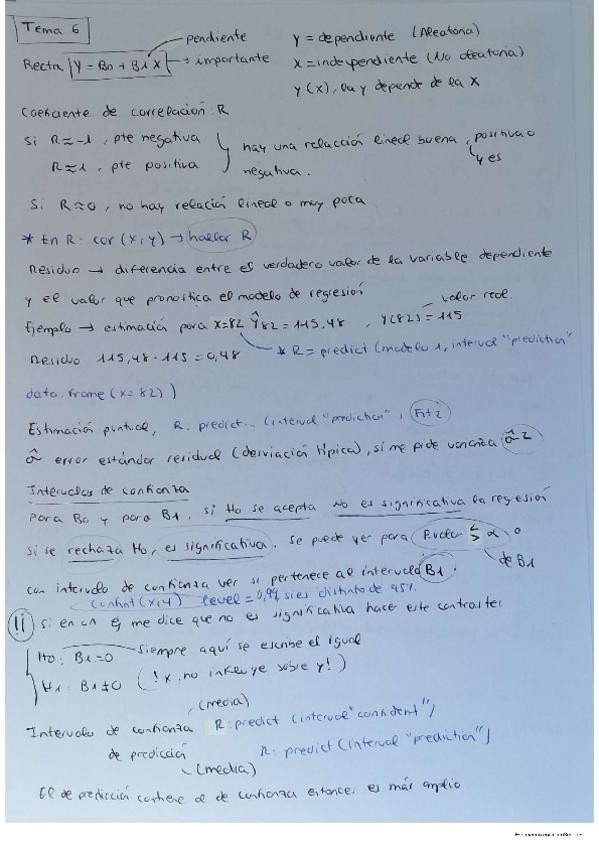 Tema 6
pendiente
Recta Y = B0 + B1 X → importante
Y = dependiente (Aleatoria)
X = independiente (No aleatoria)
Y(x), la y depende de la X
Coeficiente de correlación: R
Si R≈-1, pte negativa
R≈1, pte positiva
hay una relación lineal buena, positiva o
negativa.
y es
Si R≈0, no hay relación lineal o muy poca
* En R: cor(x,y) → hallar R
Residuo → diferencia entre el verdadero valor de la variable dependiente
y el valor que pronostica el modelo de regresión
valor real.
Ejemplo → estimación para X=82 Ŷ82 = 115,48, Y(82) = 115
Residuo 115,48 - 115 = 0,48
* R = predict (modelo 1, interval "prediction"
data.frame (x = 82))
Estimación puntual, R: predict... (interval "prediction", Fit z
σ̂ error estándar residual (desviación típica), si me pide varianza σ̂ 2
Intervalos de confianza
Para B0 y para B1, si H0 se acepta no es significativa la regresión
si se rechaza H0, es significativa. Se puede ver para P.valor ≶ α o
de B1
con intervalo de confianza ver si pertenece al intervalo B1.
confint(x,y) level = 0,99 si es distinto de 95%
!! Si en un Ej me dice que no es significativa hacer este contraste:
H0: B1 = 0 siempre aquí se escribe el igual
H1: B1 ≠ 0 (! x no influye sobre y!)
(media)
Intervalo de confianza R: predict (interval "confident")
de predicción R: predict (interval "prediction")
(media)
El de predicción contiene al de confianza entonces es más amplio